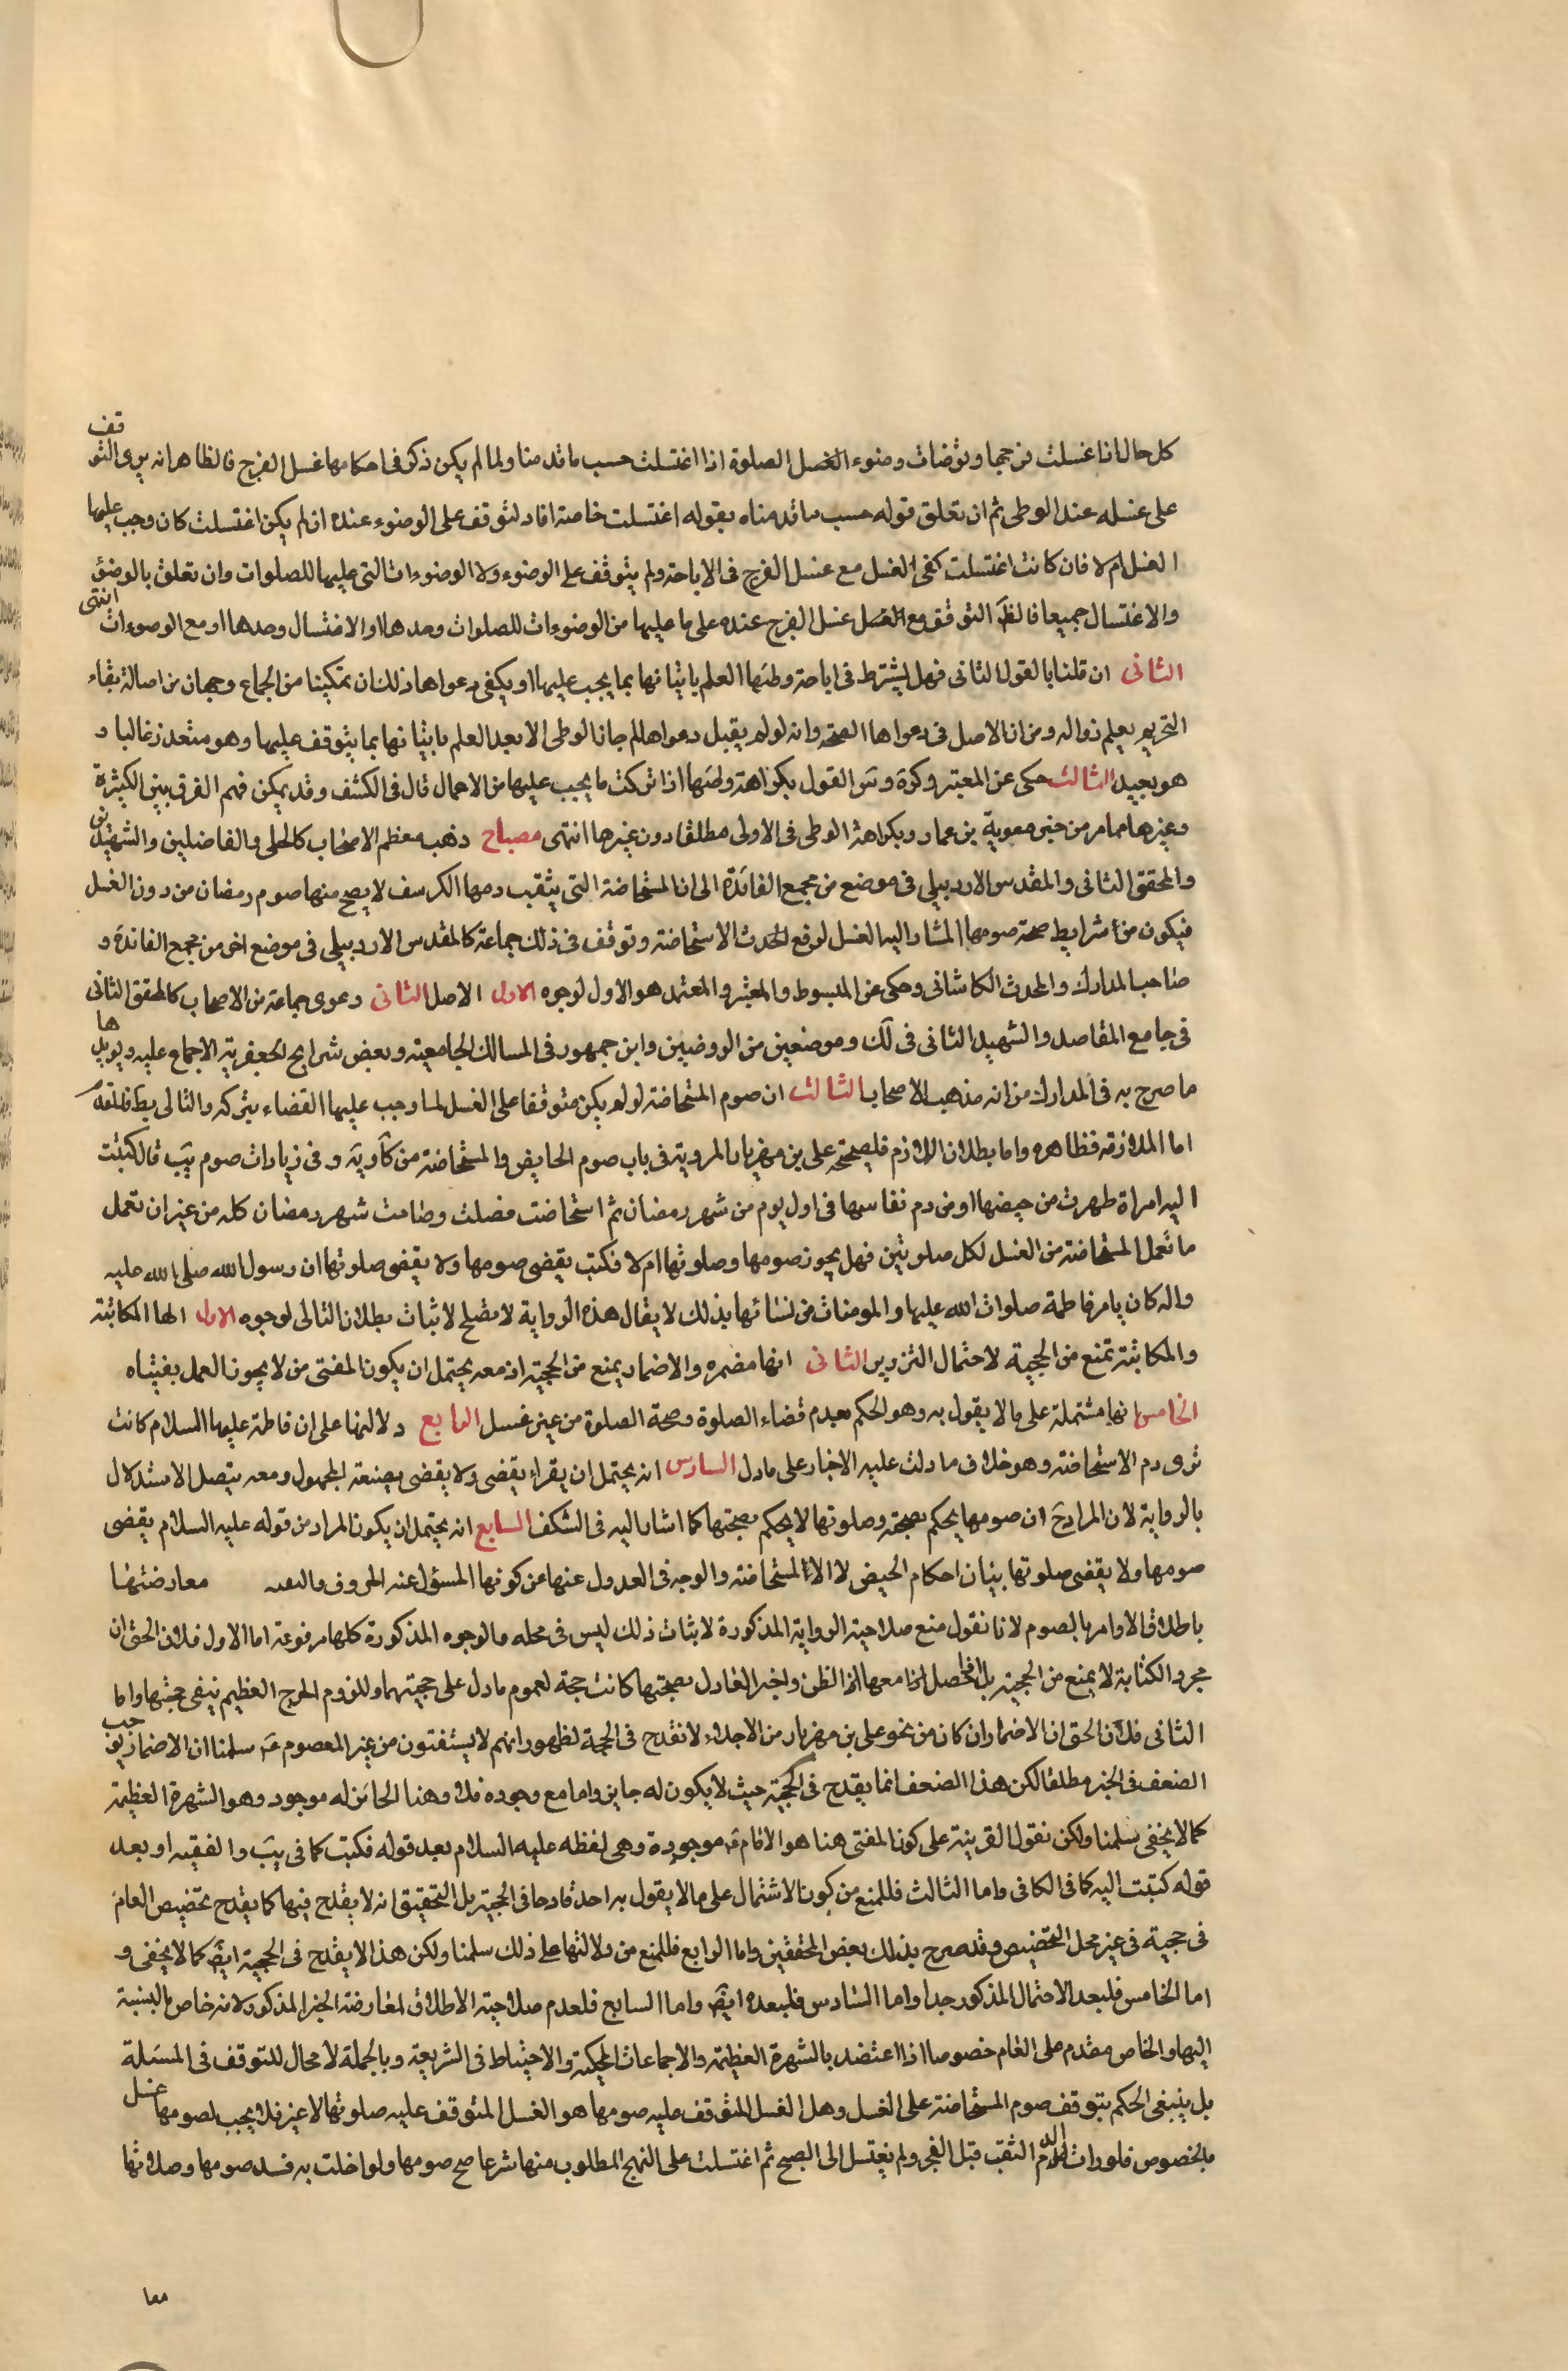 كل حال اذا غسلت فرجها و توضات وضوء الغسل الصلوة اذا اغتسلت حسب ما قدمنا ولما لم يكن ذكر فى احكامها غسل الفرج فالظاهر انه يرى التوقف
على غسله عند الوطى ثم ان تعلق قوله حسب ما قدمناه بقوله اغتسلت خاصة افاد لتوقف على الوضوء عنده ان لم يكن اغتسلت كان وجب عليها
الغسل ام لا فان كانت اغتسلت كفى الغسل مع غسل الفرج فى الاباحة ولم يتوقف على الوضوء ولا الوضوءات التى عليها للصلوات وان تعلق بالوضوء
والاغتسال جميعا فالظ التوقف مع الغسل غسل الفرج عنده على ما عليها من الوضوءات للصلوات وحدها او الاغتسال وحدها او مع الوضوءات انتهى
الثانى ان قلنا بالقول الثانى فهل يشترط فى اباحة وطئها العلم باتيانها بما يجب عليها او يكفى دعواها ذلك ان تمكينا من الجماع وجهان من اصالة بقاء
التحريم يعلم زواله ومن ان الاصل فى دعواها الصحة وانه لو لم يقبل دعواها لم جاز الوطى الا بعد العلم باتيانها بما يتوقف عليها وهو متعذر غالبا و
هو بعيد الثالث حكى عن المعتبر وكرة و القول بكراهة وطئها اذا تركت ما يجب عليها من الاعمال قال فى الكشف وقد يمكن فهم الفرق بين الكثيرة
وغيرها مما مر من خبر معوية بن عمار وبكراهة الوطى فى الاولى مطلقا دون غيرها انتهى مصباح ذهب معظم الاصحاب كالحلى والفاضلين والشهيدين
والمحقق الثانى والمقدس الاردبيلى فى موضع من مجمع الفائدة الى ان المستحاضة التى يثقب دمها الكرسف لا يصح منها صوم رمضان من دون الغسل
فيكون من شرايط صحة صومها المشار اليه الغسل لرفع الحدث الاستحاضة وتوقف فى ذلك جماعة كالمقدس الاردبيلى فى موضع اخر من مجمع الفائدة و
صاحب المدارك والمحدث الكاشانى وحكى عن المبسوط والمعتبر والمعتمد هو الاول لوجوه الاول الاصل الثانى دعوى جماعة من الاصحاب كالمحقق الثانى
فى جامع المقاصد والشهيد الثانى فى لك وموضعين من الروضتين وابن جمهور فى المسالك الجامعية وبعض شراح الجعفرية الاجماع عليه ويؤيدها
ما صرح به فى المدارك من انه مذهب الاصحاب الثالث ان صوم المستحاضة لو لم يكن متوقفا على الغسل لما وجب عليها القضاء بتركه والتالى بط فالمقدم
اما الملازمة فظاهره واما بطلان اللازم فلصحيحة على بن مهزيار المروية فى باب صوم الحايض والمستحاضة من كا وية وفى زيادات صوم يب قال كتبت
اليه امراة طهرت من حيضها او من دم نفاسها فى اول يوم من شهر رمضان ثم استحاضت فصلت وصامت شهر رمضان كله من غير ان تعمل
ما تعمل المستحاضة من الغسل لكل صلوتين فهل يجوز صومها وصلوتها ام لا فكتب يقضى صومها ولا يقضى صلوتها ان رسول الله صلى الله عليه
واله كان يامر فاطمة صلوات الله عليها والمومنات من نسائها بذلك لا يقال هذه الرواية لا تصلح لاثبات بطلان التالى لوجوه الاول انها المكاتبة
والمكاتبة تمنع من الحجية لاحتمال التزوير الثانى انها مضمره والاضمار يمنع من الحجية اذ معه يحتمل ان يكون المفتى من لا يجوز العمل بفتياه
الخامس انها مشتملة على ما لا يقول به وهو الحكم بعدم قضاء الصلوة وصحة الصلوة من غير غسل الرابع دلالتها على ان فاطمة عليها السلام كانت
ترى دم الاستحاضة وهو خلاف ما دلت عليه الاخبار على ما دل السادس انه يحتمل ان يقراء يقضى ولا يقضى بصيغة المجهول ومعه يتصل الاستدلال
بالرواية لان المراد ح ان صومها يحكم بصحته وصلوتها لا يحكم بصحتها كما اشار اليه فى الشكف السابع انه يحتمل ان يكون المراد من قوله عليه السلام يقضى
صومها ولا يقضى صلوتها بيان احكام الحيض لا الاستحاضة والوجه فى العدول عنها عن كونها المسؤل عنه الحروف والتقية معارضتها
باطلاق الاوامر بالصوم لانا نقول منع صلاحية الرواية المذكورة لاثبات ذلك ليس فى محله والوجوه المذكورة كلها مرفوعة اما الاول فلان الحق ان
مجرد الكتابة لا يمنع من الحجية بل اذا حصل معها الظن واخبر العادل بصحتها كانت حجة لعموم ما دل على حجيتهما وللزوم الحرج العظيم بنفى حجيتها واما
الثانى فلان الحق ان الاضمار ان كان من نحو على بن مهزيار من الاجلاء لا تقدح فى الحجة لظهور انهم لا يستفتون من غير المعصوم ع سلمنا ان الاضمار يوجب
الضعف فى الخبر مطلقا لكن هذا الضعف انما يقدح فى الحجية حيث لا يكون له جابر واما مع وجوده فلا وهنا الجابر له موجود وهو الشهرة العظيمة
كما لا يخفى سلمنا ولكن نقول القرينة على كون المفتى هنا هو الامام ع موجودة وهى لفظه عليه السلام بعد قوله فكتب كما فى يب والفقيه او بعد
قوله كتبت اليه كما فى الكافى واما الثالث فللمنع من كون الاشتمال على ما لا يقول به احد قادحا فى الحجية بل التحقيق انه لا يقدح فيها كما يقدح تخصيص العام
فى حجية فى غير محل التخصيص وقد صرح بذلك بعض المحققين واما الرابع فللمنع من دلالتها على ذلك سلمنا ولكن هذا لا يقدح فى الحجية ايض كما لا يخفى و
اما الخامس فلبعد الاحتمال المذكور جدا واما السادس فلبعده ايض واما السابع فلعدم صلاحية الاطلاق لمعارضة الخبر المذكور لانه خاص بالنسبة
اليها والخاص مقدم على العام خصوصا اذا اعتضد بالشهرة العظيمة والاجماعات المحكية والاحتياط فى الشريعة وبالجملة لا مجال للتوقف فى المسئلة
بل ينبغى الحكم بتوقف صوم المستحاضة على الغسل وهل الغسل المتوقف عليه صومها هو الغسل المتوقف عليه صلوتها لا غير فلا يجب لصومها غسل
بالخصوص فلو رات الدم الثقب قبل الفجر ولم يغتسل الى الصبح ثم اغتسلت على النهج المطلوب منها شرعا صح صومها ولو اخلت به فسد صومها وصلاتها
معا